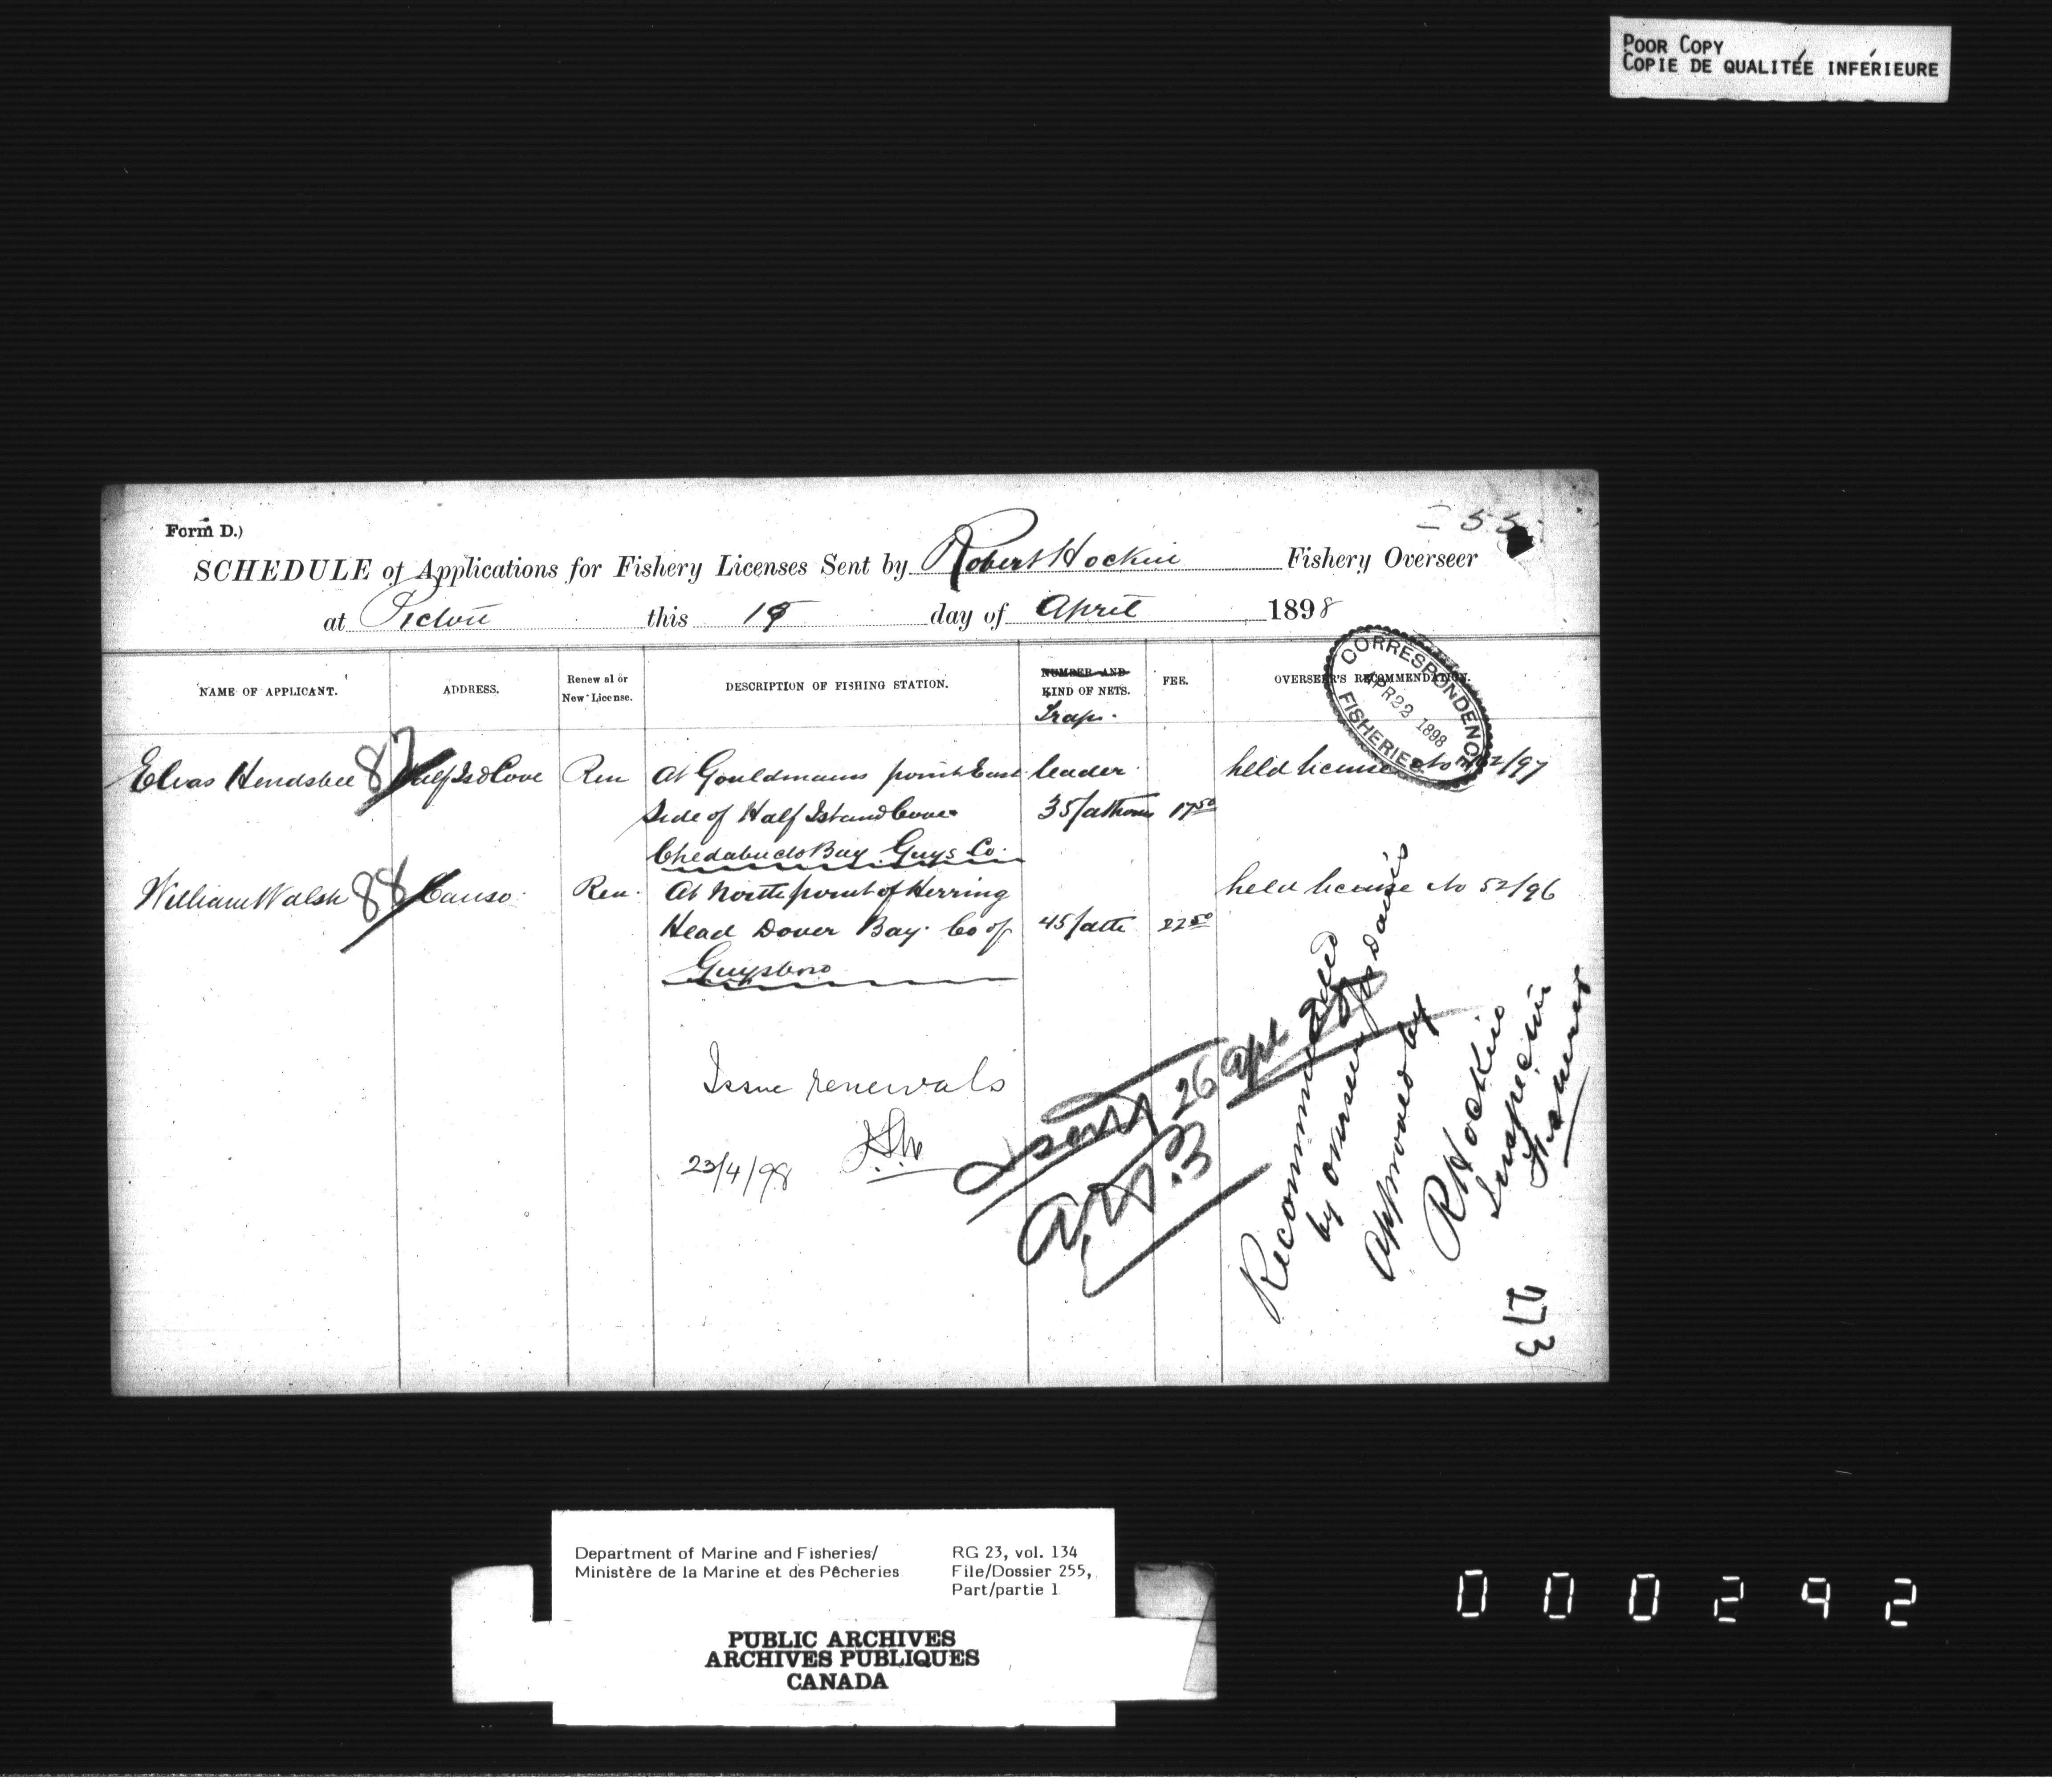 POOR COPY
COPIE DE QUALITÉE INFÉRIEURE
Form D.)
255
SCHEDULE of Applications for Fishery Licenses Sent by Robert Hockin Fishery Overseer
at Pictou this 19 day of April 1898
NAME OF APPLICANT. ADDRESS. Renewal or New License. DESCRIPTION OF FISHING STATION. NUMBER AND KIND OF NETS. FEE. OVERSEER'S RECOMMENDATION.
Trap.
CORRESPONDENCE
APR 22 1898
FISHERIES
Elias Hendsbee 87 Half Isd Cove Ren At Gouldmans point East leader held license No /97
Side of Half Island Cove 35 fathoms 17 50
Chedabucto Bay Guys. Co.
William Walsh 88 Canso Ren. At North point of Herring held license No 52/96
Head Dover Bay. Co of 45 fath 22 50
Guysboro
Issue renewals
23/4/98
26 Apl
Recommended
by overseer Davis
approved by
R Hockin
Inspector
Fisheries
Department of Marine and Fisheries/
Ministère de la Marine et des Pêcheries
RG 23, vol. 134
File/Dossier 255,
Part/partie 1
PUBLIC ARCHIVES
ARCHIVES PUBLIQUES
CANADA
000292